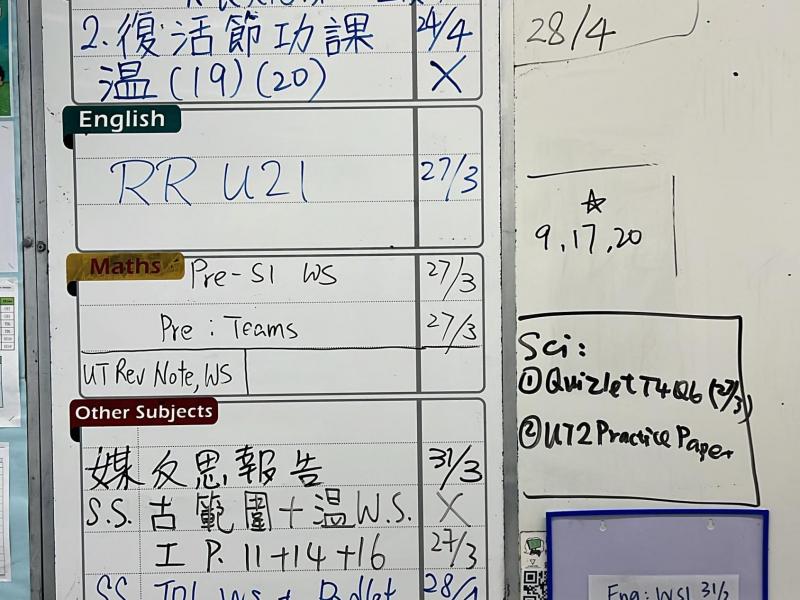 2.復活節功課 24/4
溫(19)(20) X
English
RR U21 27/3
Maths
Pre-S1 WS 27/3
Pre : Teams 27/3
UT Rev Note, WS
Other Subjects
媒反思報告 31/3
S.S. 古範圍+溫W.S. X
工 P. 11+14+16 27/3
28/4
☆
9,17,20
Sci:
①Quizlet T4Q6 (27/3)
②UT2 Practice Paper
Eng: WS1